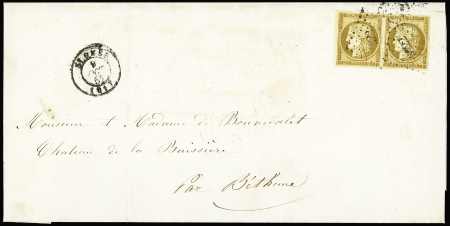 ST OMER
(61)
Monsieur et Madame de Bonnevalet
Chateau de la Buissière
Par Béthune